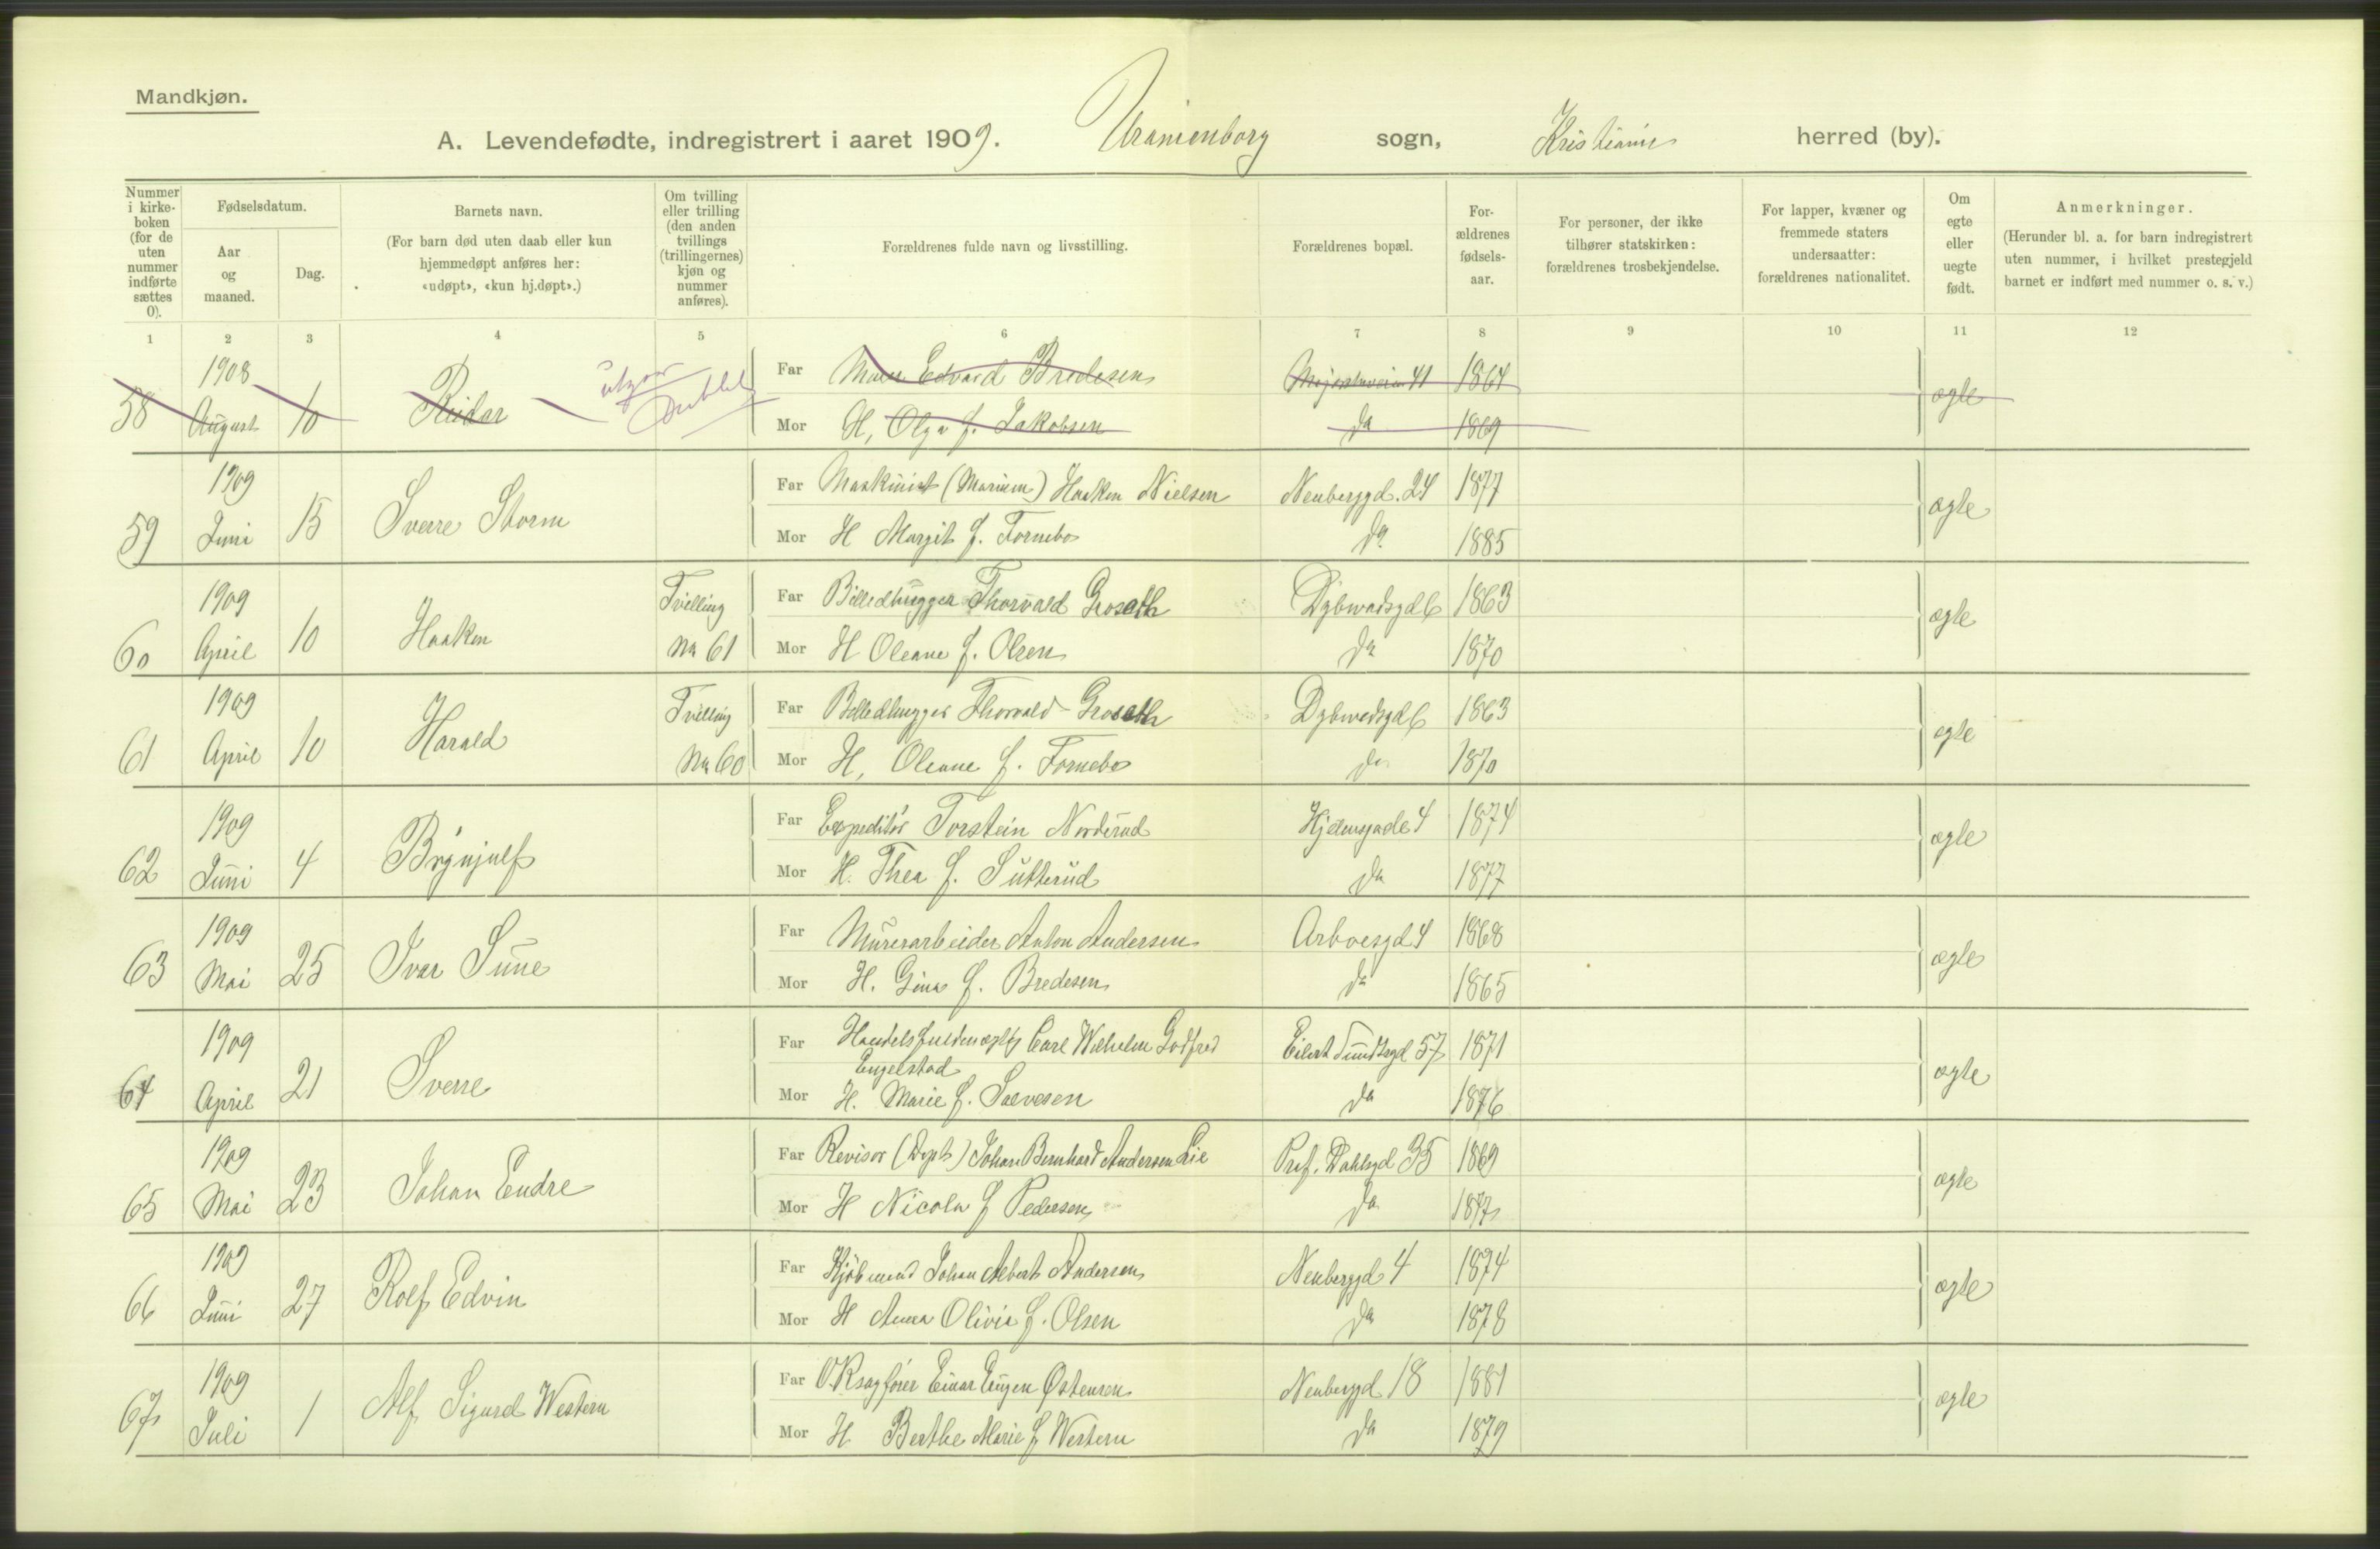 Mandkjøn.
A. Levendefødte, indregistrert i aaret 1909. Uranienborg sogn, Kristiania herred (by).
Nummer i kirke-boken (for de uten nummer indførte sættes 0).
Fødselsdatum.
Aar og maaned.
Dag.
Barnets navn.
(For barn død uten daab eller kun hjemmedøpt anføres her: «udøpt», «kun hj.døpt».)
Om tvilling eller trilling (den anden tvillings (trillingernes) kjøn og nummer anføres).
Forældrenes fulde navn og livsstilling.
Forældrenes bopæl.
For-ældrenes fødsels-aar.
For personer, der ikke tilhører statskirken: forældrenes trosbekjendelse.
For lapper, kvæner og fremmede staters undersaatter: forældrenes nationalitet.
Om egte eller uegte født.
Anmerkninger.
(Herunder bl. a. for barn indregistrert uten nummer, i hvilket prestegjeld barnet er indført med nummer o. s. v.)
1 2 3 4 5 6 7 8 9 10 11 12
58 1908 August 10 Reidar utgaar Dublet
Far Edvard Bredesen 41 1864 ægte
Mor H, Olga f. Jakobsen da 1869
59 1909 Juni 15 Sverre Storm
Far Maskinist (Marinen) Haakon Nielsen Neuberggd. 24 1877 ægte
Mor H Margit f. Fornebo da 1885
60 1909 April 10 Haakon Tvilling No 61
Far Billedhugger Thorvald Groseth Dybwadsgd 6 1863 ægte
Mor H Oleane f. Olsen da 1870
61 1909 April 10 Harald Tvilling No 60
Far Billedhugger Thorvald Groseth Dybwadsgd 6 1863 ægte
Mor H, Oleane f. Fornebo da 1870
62 1909 Juni 4 Brynjulf
Far Expeditør Torstein Norderud Hjelmsgade 4 1874 ægte
Mor H. Thea f. Sutterud da 1877
63 1909 Mai 25 Ivar Sune
Far Murerarbeider Anton Andersen Arboesgd 4 1868 ægte
Mor H. Gina f. Bredesen da 1865
64 1909 April 21 Sverre
Far Handelsfuldmægtig Carl Wilhelm Godfred Engelstad Eilert Sundtsgd 57 1871 ægte
Mor H. Marie f. Salvesen da 1876
65 1909 Mai 23 Johan Endre
Far Revisor (Dept) Johan Bernhard Andersen Lie Prof. Dahlsgd 35 1869 ægte
Mor H Nicola f Pedersen da 1877
66 1909 Juni 27 Rolf Edvin
Far Kjøbmand Johan Albert Andersen Neuberggd 4 1874 ægte
Mor H Anna Olivia f. Olsen da 1878
67 1909 Juli 1 Alf Sigurd Western
Far O.R.sagfører Einar Eugen Østensen Neuberggd 18 1881 ægte
Mor H Berthe Marie f Western da 1879